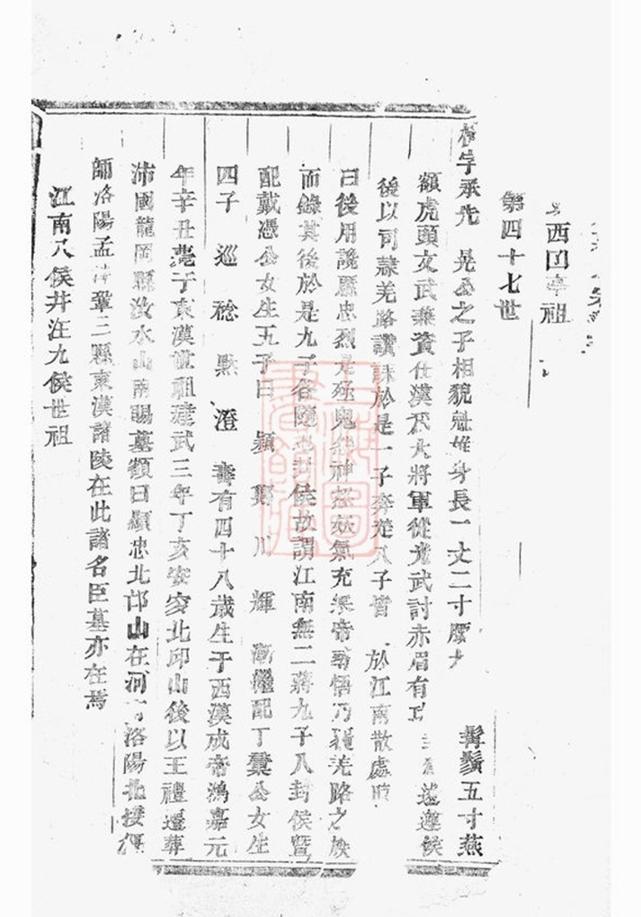 西回亭祖
第四十七世
橫字承先 晃公之子相貌魁雄身長一丈二寸腰大 髯鬚五寸燕
額虎頭文武兼資仕漢爲大將軍從光武討赤眉有功 逡遒侯
後以司隸羌路讒誅於是一子奔楚八子皆 於江南散處時
曰後用讒縣忠烈 鬼 神 怒氣充 帝 悟乃 羌路之族
而錄其後於是九子各隨 封侯故謂江南無二蔣九子八封侯暨
配戴憑公女生五子曰 潁 鄭 川 輝 漸繼配丁 公女生
四子 巡 稔 默 澄 壽有四十八歲生于西漢成帝鴻嘉元
年辛丑薨于東漢世祖建武三年丁亥安窆北邙山後以王禮遷葬
沛國龍岡縣汝水山南賜墓額曰顯忠北邙山在河 洛陽北接偃
師洛陽孟津鞏三縣東漢諸陵在此諸名臣墓亦在焉
江南八侯井汪九侯世祖